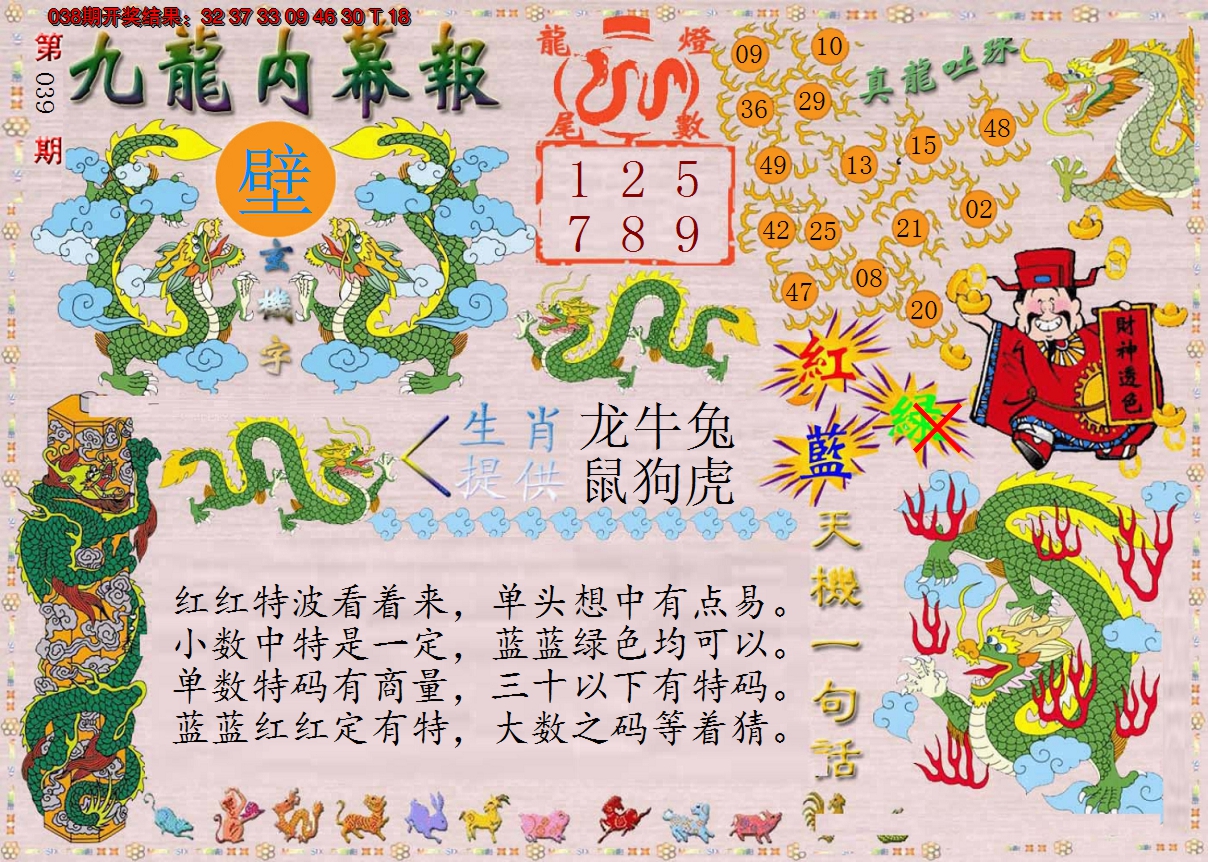 038期开奖结果：32 37 33 09 46 30 T 18
第039期
九龍内幕報
壁
玄機字
龍燈
尾數
1 2 5
7 8 9
真龍吐珠
09
10
36
29
15
48
49
13
02
42
25
21
08
47
20
財神透色
紅
綠
藍
生肖 龙牛兔
提供 鼠狗虎
天機一句话
红红特波看着来，单头想中有点易。
小数中特是一定，蓝蓝绿色均可以。
单数特码有商量，三十以下有特码。
蓝蓝红红定有特，大数之码等着猜。